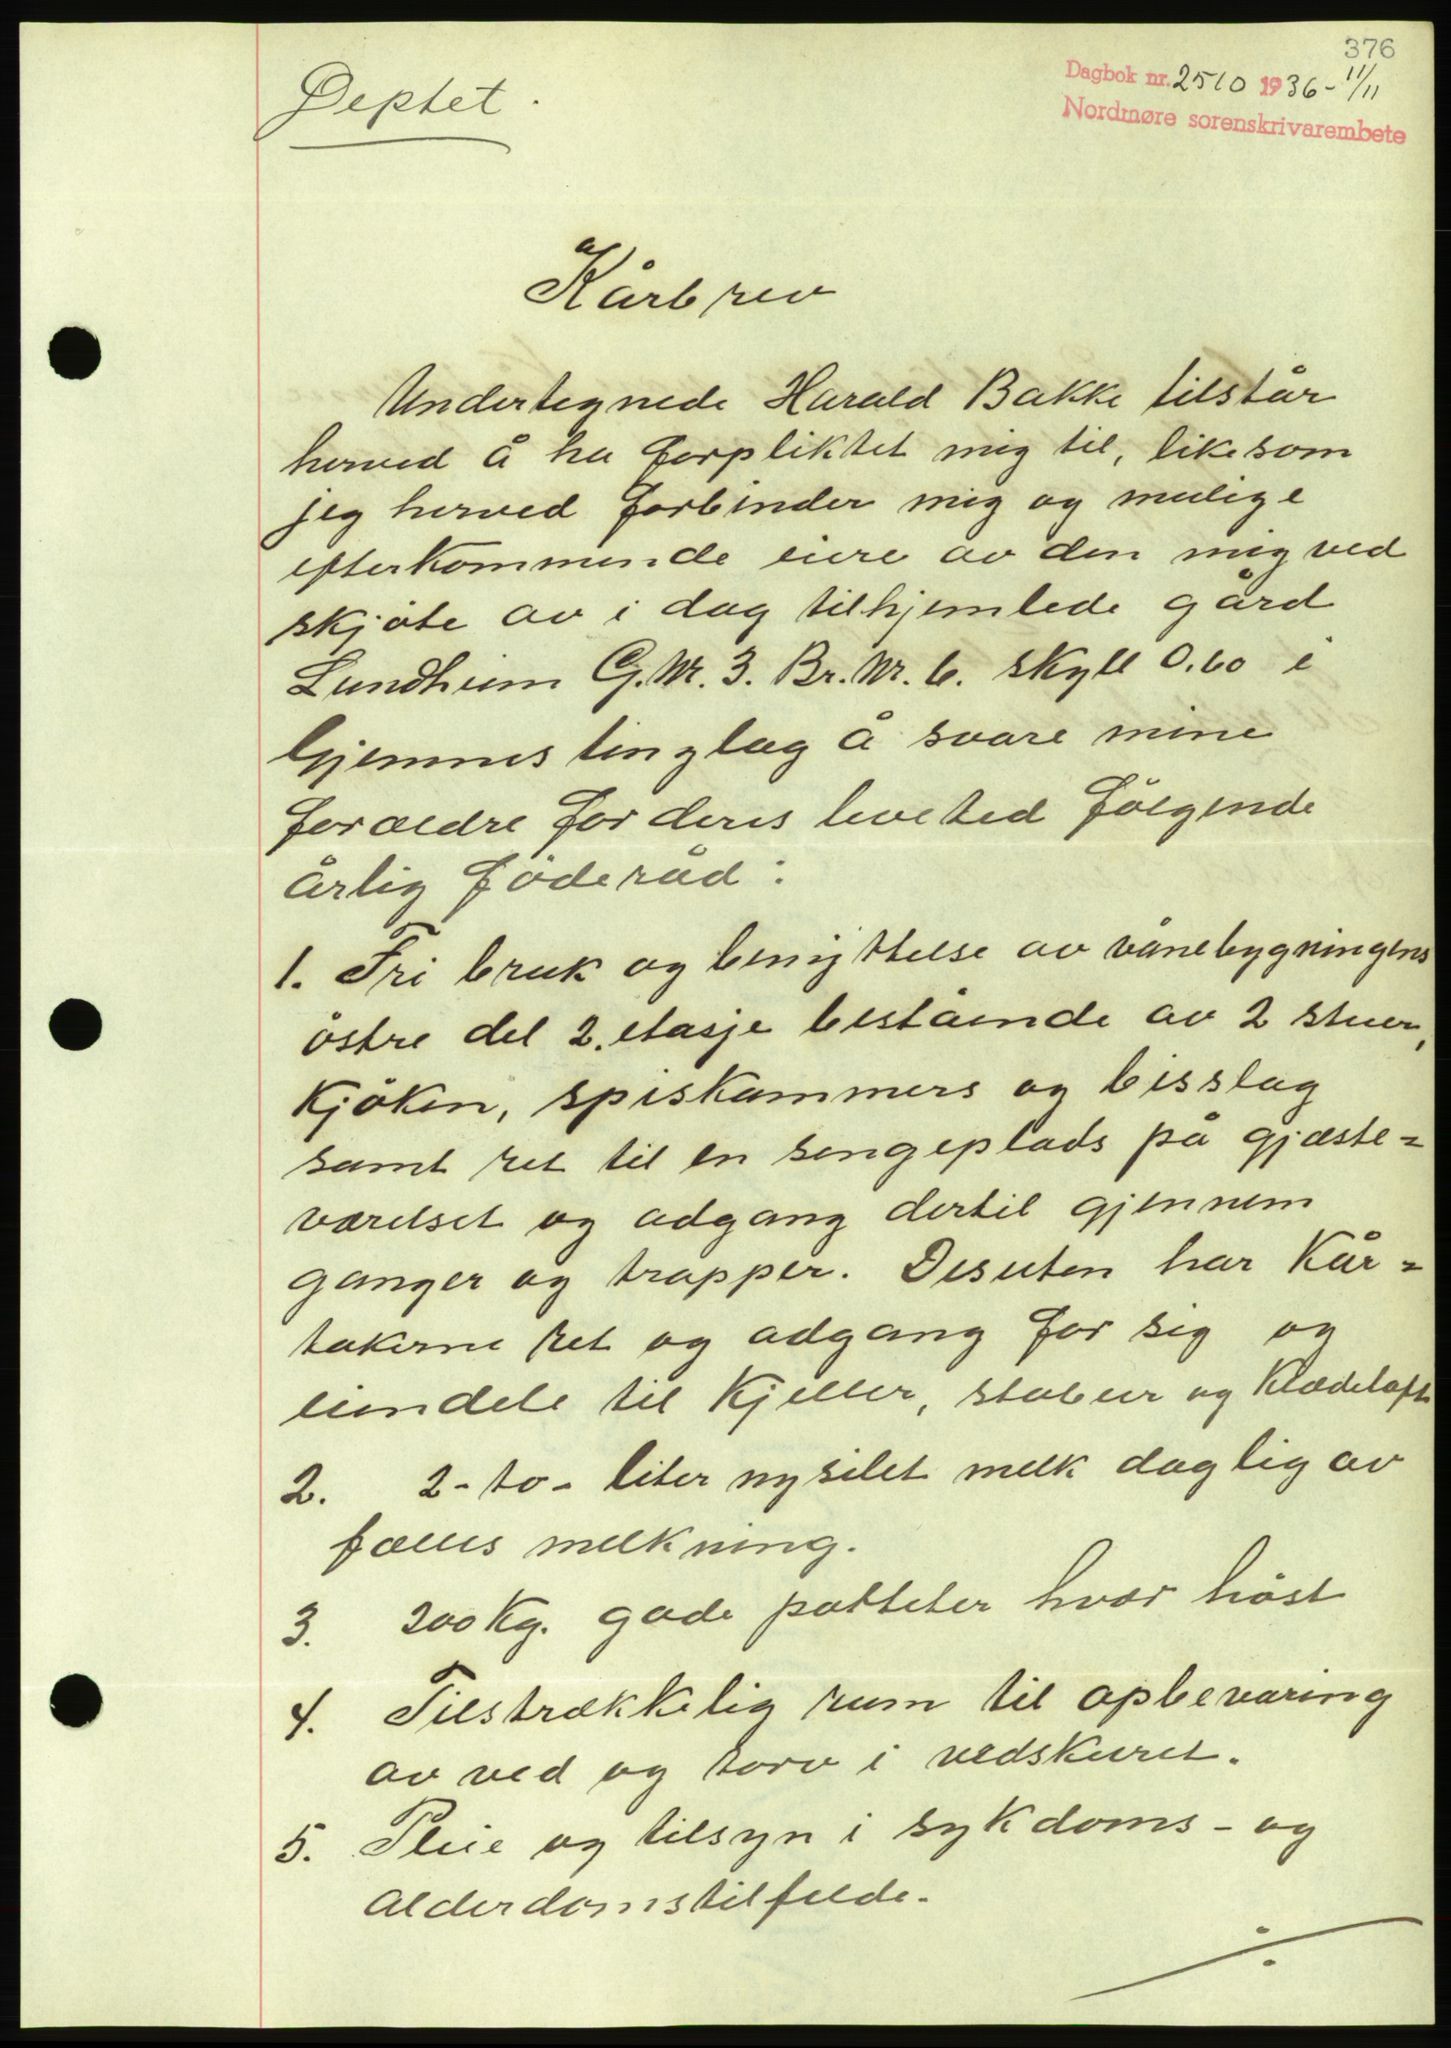 376
Dagbok nr. 2510 1936 - 11/11
Nordmøre sorenskrivarembete
Deptet.
Kårbrev
Undertegnede Harald Bakke tilstår
herved å ha forpliktet mig til, likesom
jeg herved forbinder mig og mulige
efterkommende eiere av den mig ved
skjöte av i dag tilhjemlede gård
Lundheim G.Nr. 3. Br.Nr. 6. skyll 0.60 i
Gjemnes tinglag å svare mine
forældre for deres levetid fölgende
årlig föderåd:
1. Fri bruk og benyttelse av vånebygningens
östre del 2. etasje bestående av 2 stuer,
kjöken, spiskammers og bisslag
samt ret til en sengeplads på gjæste=
værelset og adgang dertil gjennem
ganger og trapper. Desuten har kår=
takerne ret og adgang for sig og
eiendele til kjeller, stabur og klædeloft
2. 2-to-liter nysilet melk daglig av
fælles melkning.
3. 200 Kg. gode potteter hvær höst
4. Tilstrækkelig rum til opbevaring
av ved og torv i vedskuret.
5. Pleie og tilsyn i sykdoms- og
alderdomstilfelde.